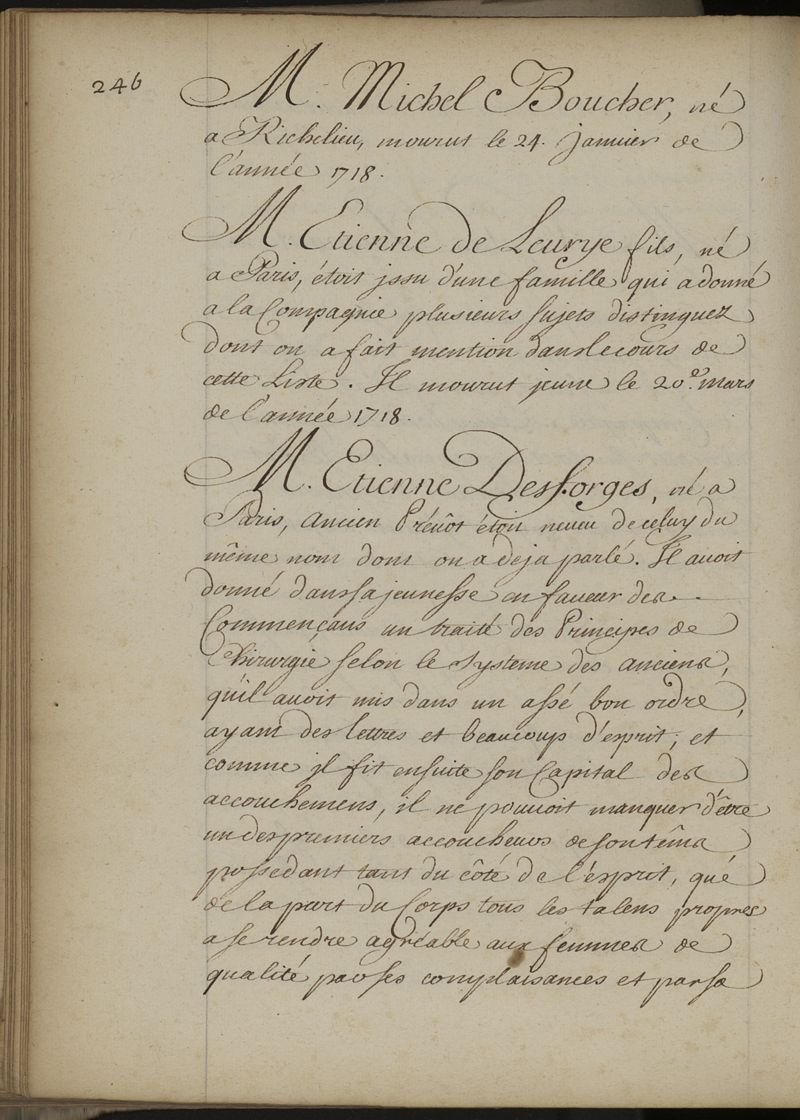 246
M. Michel Boucher, né
a Richelieu, mourut le 24. Janvier de
l'année 1718.
M. Etienne de Leurye fils, né
a Paris, étoit jssu d'une famille qui a donné
a la Compagnie plusieurs sujets distinguez
dont on a fait mention dans le cours de
cette Liste. Il mourut jeune le 20e. mars
de l'année 1718.
M. Etienne Desforges, né a
Paris, ancien Prévôt étoit neveu de celuy du
même nom dont on a deja parlé. Il avoit
donné dans sa jeunesse en faveur des
Commençans un traité des Principes de
Chirurgie selon le systeme des anciens,
qu'il avoit mis dans un assé bon ordre,
ayant des lettres et beaucoup d'esprit; et
comme jl fit ensuite son Capital des
accouchemens, il ne pouvoit manquer d'être
un des premiers accoucheurs de son tems
possedant tant du côté de l'esprit, que
de la part du Corps tous les talens propres
a se rendre agréable aux femmes de
qualité par ses complaisances et par sa